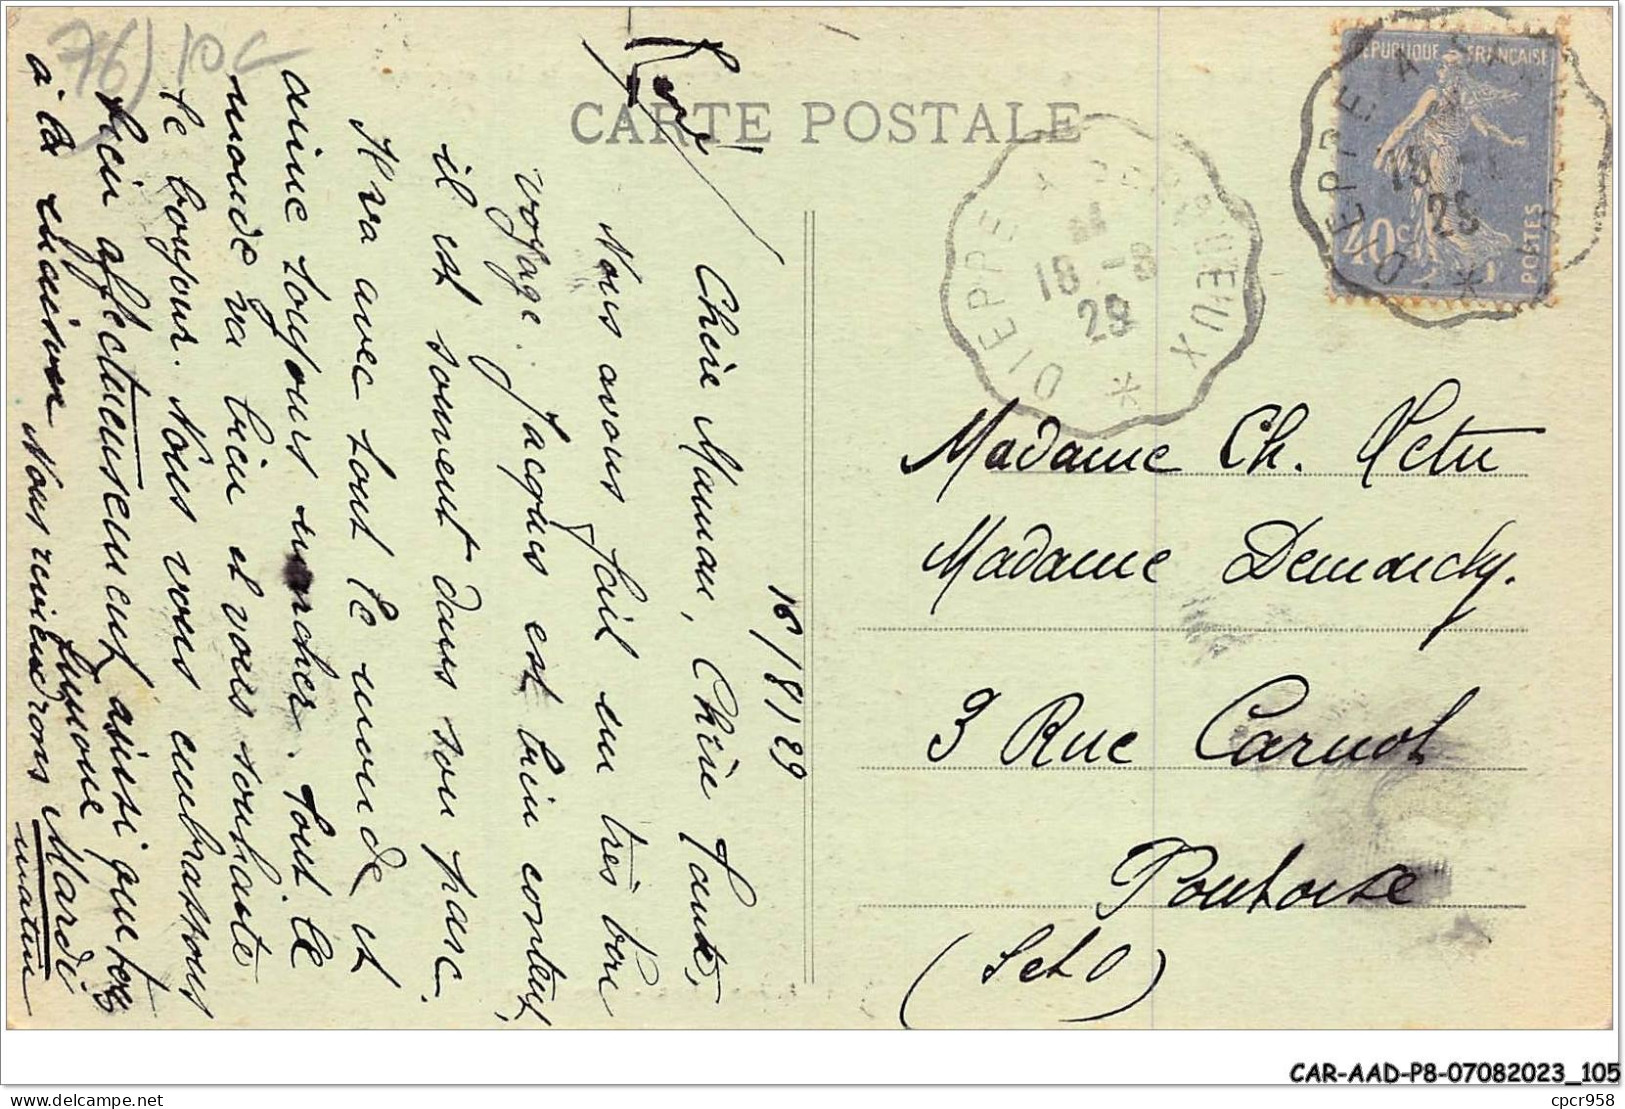 76) 10c
CARTE POSTALE
RÉPUBLIQUE FRANÇAISE
40c
POSTES
DIEPPE A
28
DIEPPE A
18 -8
29
16/8/29
Chère Maman, Chère Tante,
Nous avons fait un très bon
voyage. Jacques est bien content,
il est souvent dans son parc.
Il va avec tout le monde et
aime toujours marcher. Tout le
monde va bien et vous souhaite
le bonjour. Nous vous embrassons
bien affectueusement, ainsi que
à la
Simone
Nous reviendrons Mardi
matin
Madame Ch. Vetu
Madame Demarchy.
3 Rue Carnot
Pontoise
(S et O)
CAR-AAD-P8-07082023_105
cpcr958